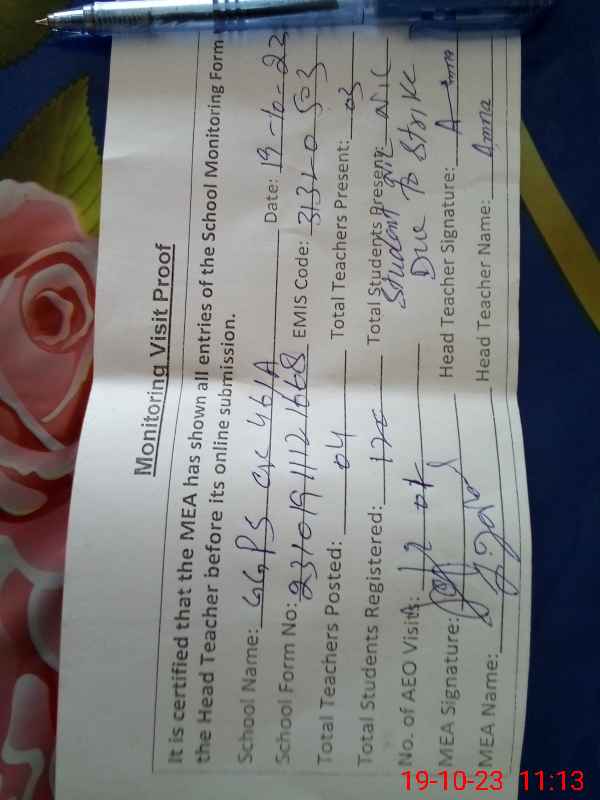 Monitoring Visit Proof
It is certified that the MEA has shown all entries of the School Monitoring Form
the Head Teacher before its online submission.
School Name: GGPS Chk 461A Date: 19-10-23
School Form No: 23101911121668 EMIS Code: 31310503
Total Teachers Posted: 04 Total Teachers Present: 03
Total Students Registered: Total Students Present: NIL
Student
Due To Strike
No. of AEO Visits: 04
MEA Signature: Head Teacher Signature: Amna
MEA Name: Head Teacher Name: Amna
19-10-23 11:13